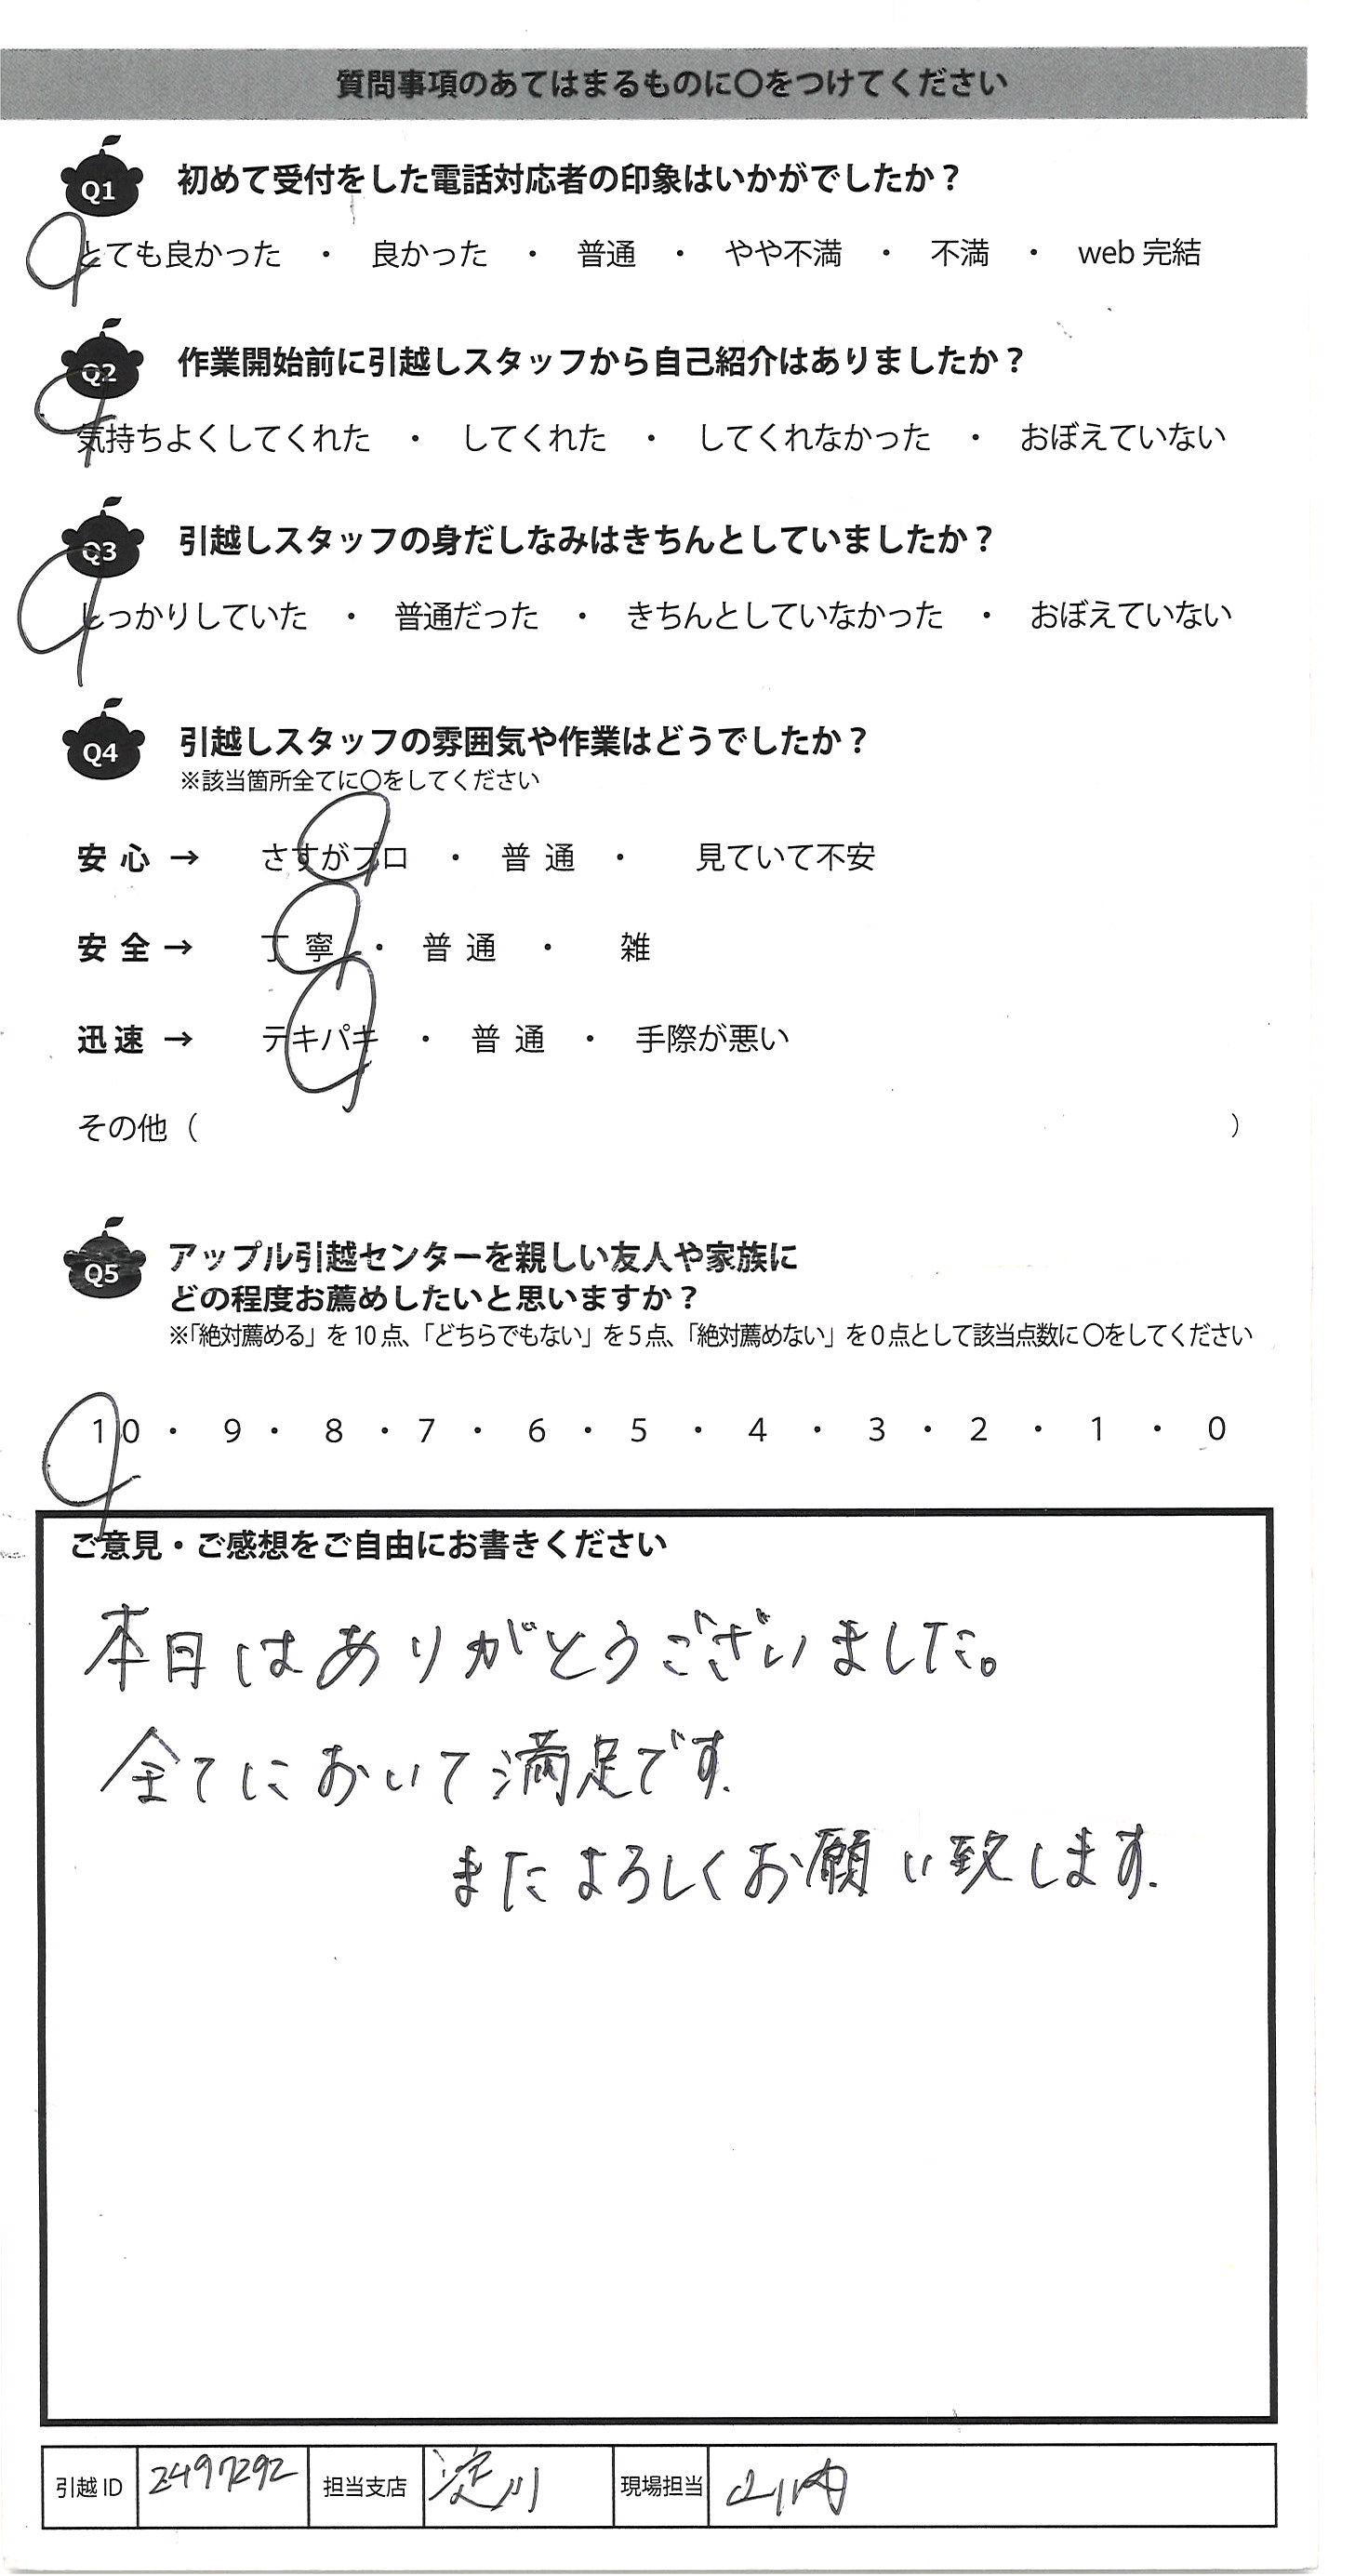 質問事項のあてはまるものに〇をつけてください
Q1 初めて受付をした電話対応者の印象はいかがでしたか？
とても良かった ・ 良かった ・ 普通 ・ やや不満 ・ 不満 ・ web 完結
Q2 作業開始前に引越しスタッフから自己紹介はありましたか？
気持ちよくしてくれた ・ してくれた ・ してくれなかった ・ おぼえていない
Q3 引越しスタッフの身だしなみはきちんとしていましたか？
しっかりしていた ・ 普通だった ・ きちんとしていなかった ・ おぼえていない
Q4 引越しスタッフの雰囲気や作業はどうでしたか？
※該当箇所全てに〇をしてください
安 心 → さすがプロ ・ 普 通 ・ 見ていて不安
安 全 → 丁 寧 ・ 普 通 ・ 雑
迅 速 → テキパキ ・ 普 通 ・ 手際が悪い
その他（ ）
Q5 アップル引越センターを親しい友人や家族に
どの程度お薦めしたいと思いますか？
※「絶対薦める」を 10 点、「どちらでもない」を 5 点、「絶対薦めない」を 0 点として該当点数に 〇をしてください
10 ・ 9 ・ 8 ・ 7 ・ 6 ・ 5 ・ 4 ・ 3 ・ 2 ・ 1 ・ 0
ご意見・ご感想をご自由にお書きください
本日はありがとうございました。
全てにおいて満足です.
またよろしくお願い致します.
引越 ID 2497292 担当支店 淀川 現場担当 山内